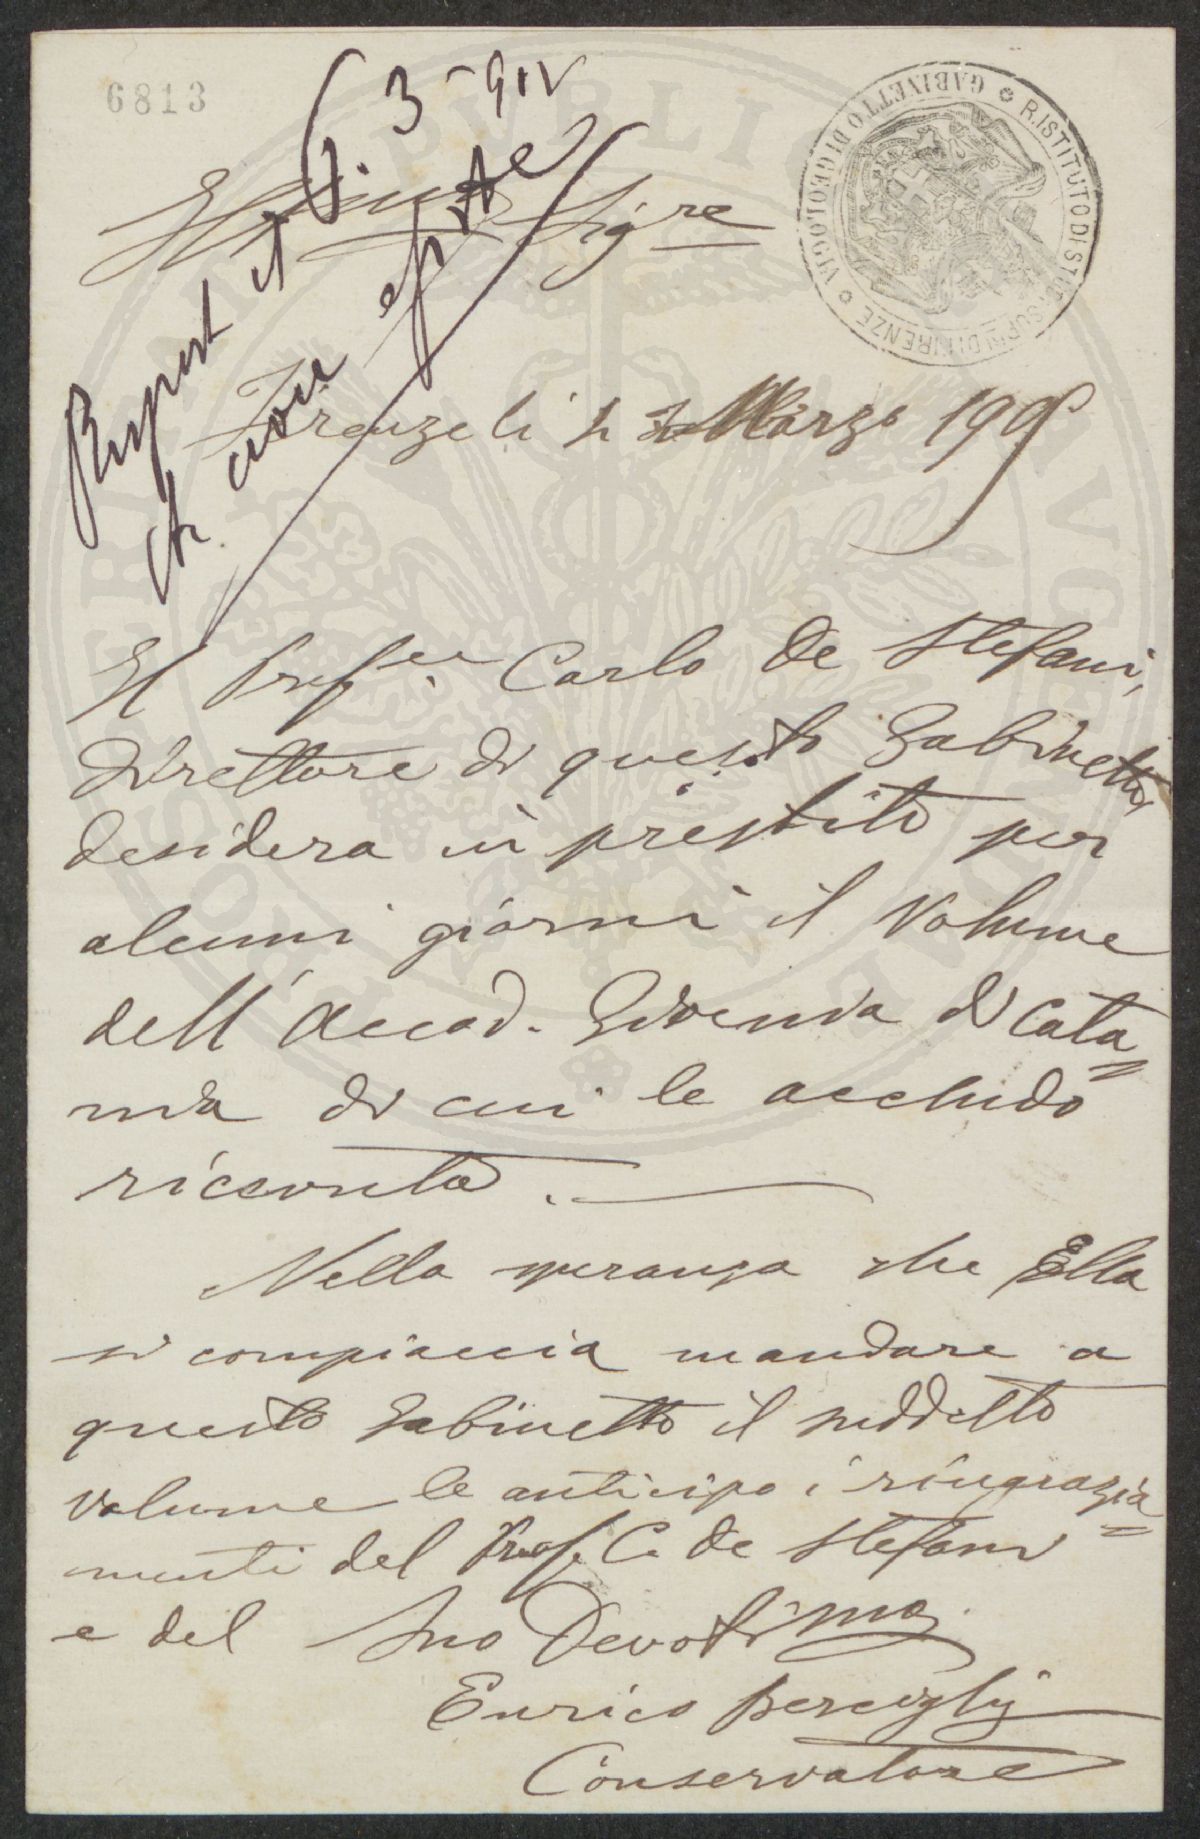 6813
R. ISTITUTO DI STUDI SUP.RI DI FIRENZE
GABINETTO DI GEOLOGIA
3 - 912
Sigre
Firenze li Marzo
Il Profre Carlo De Stefani,
direttore di questo Gabinetto,
desidera in prestito per
alcuni giorni il volume
dell'Accad. Gioenia di Cata=
nia di cui le accludo
ricevuta.
Nella speranza che Ella
si compiaccia mandare a
questo Gabinetto il suddetto
volume le anticipo i ringrazia=
menti del Prof. C. de Stefani
e del Suo Devotimo
Enrico Bercigli
Conservatore